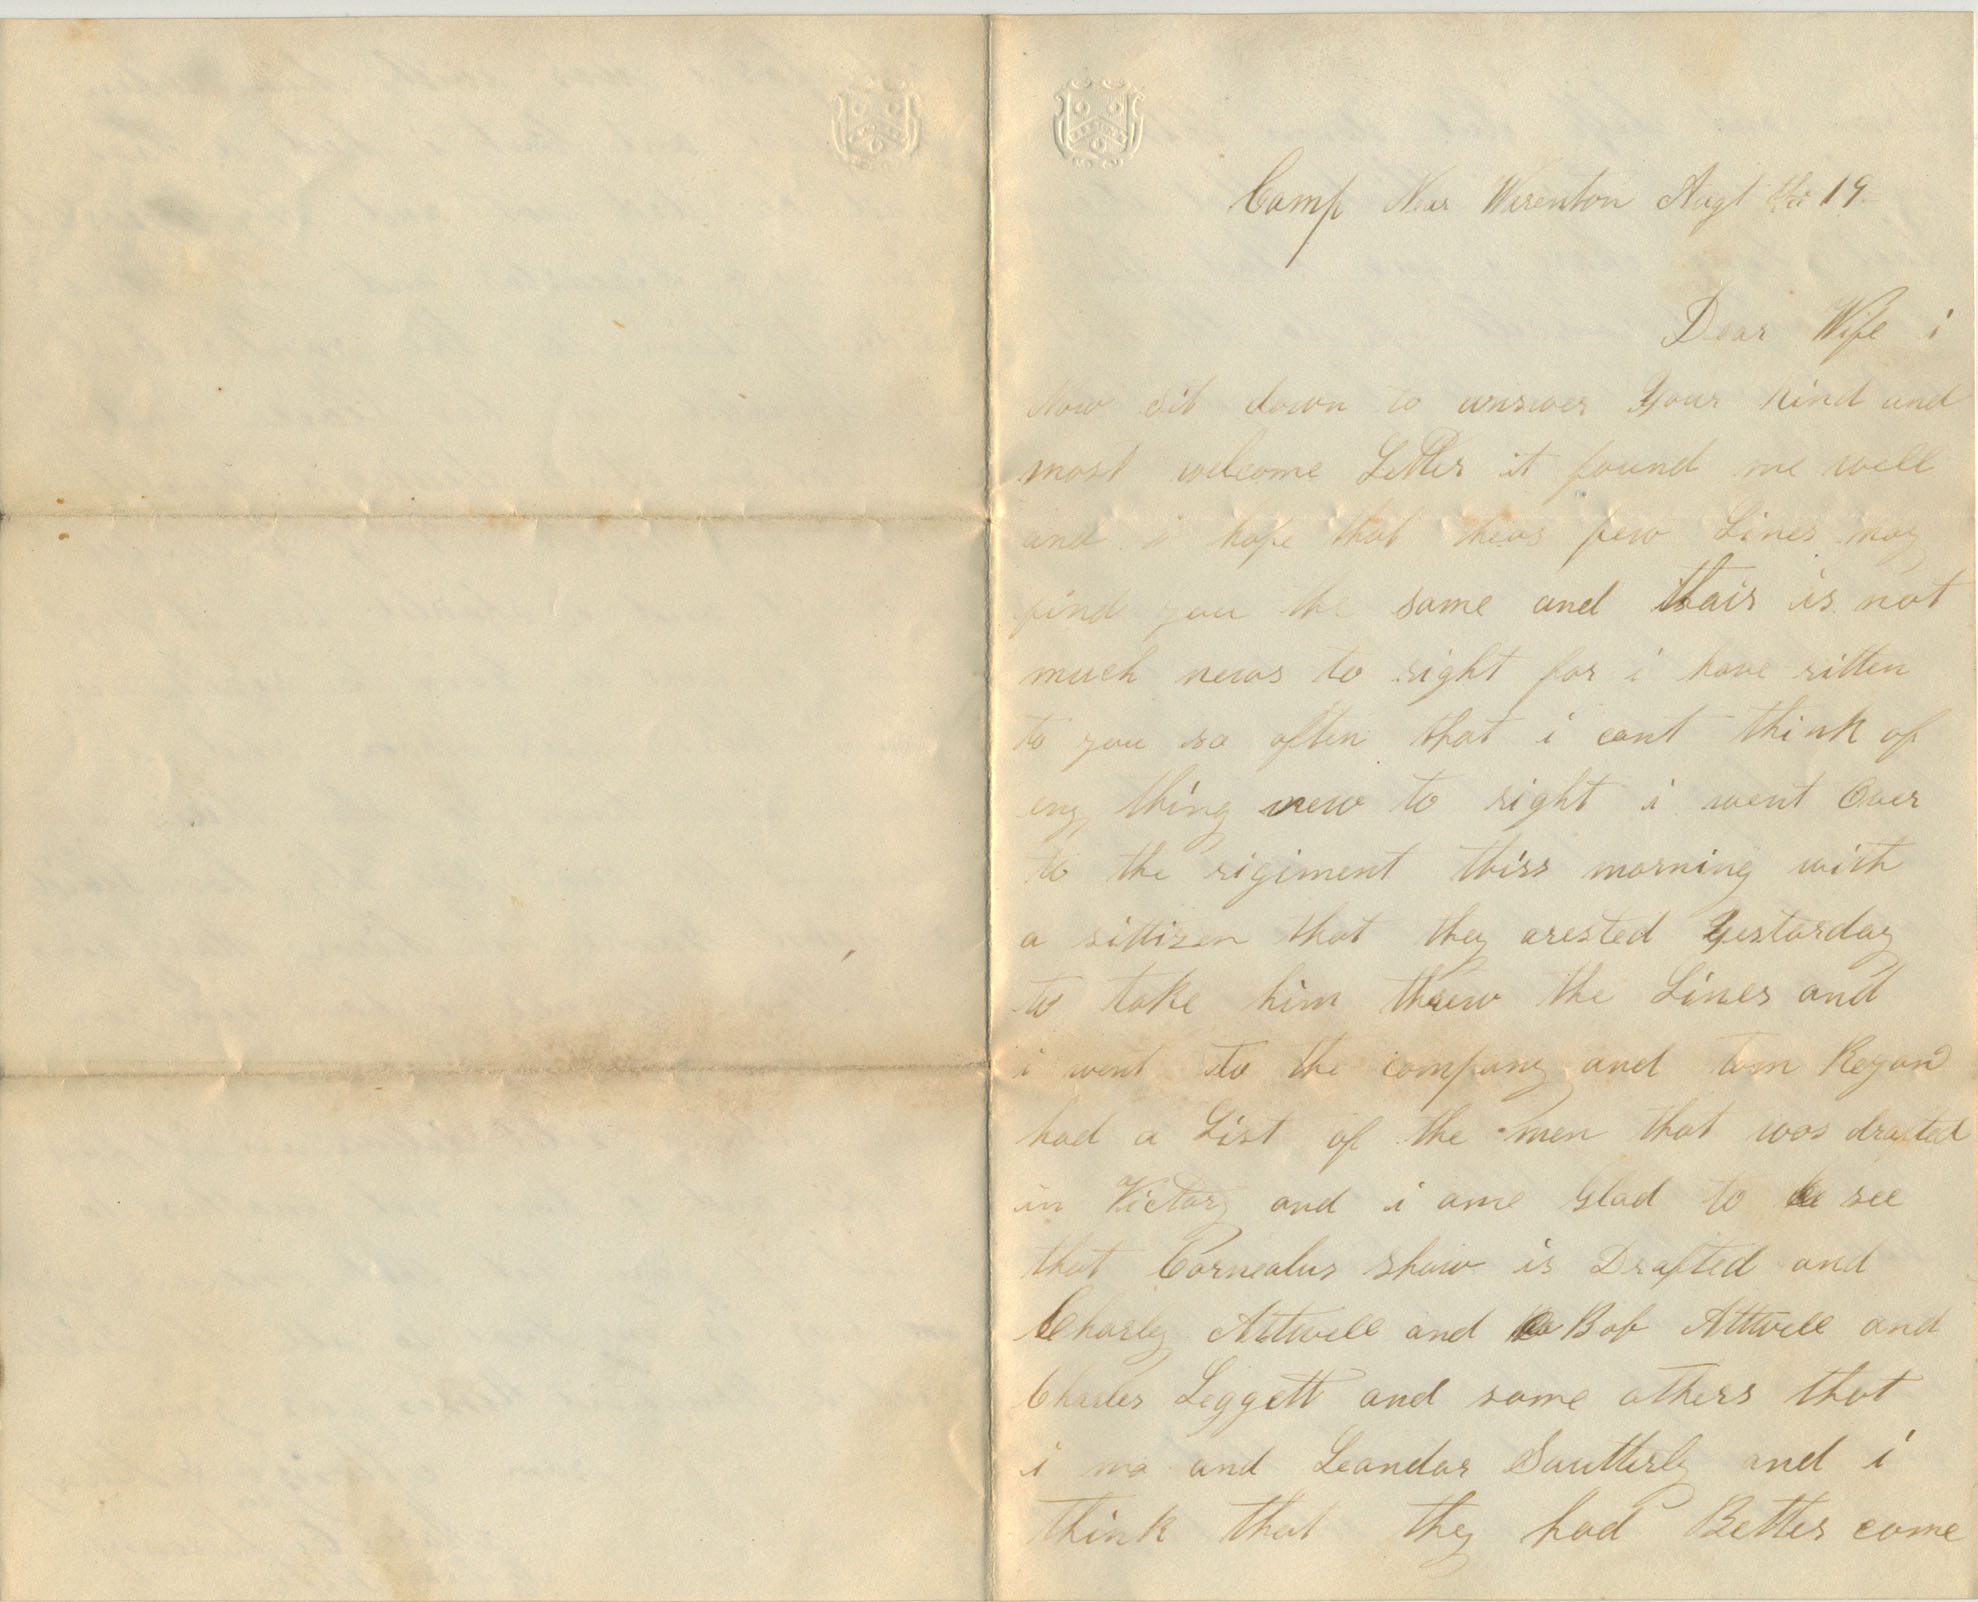 Camp Near Warenton Augt the 19
Dear Wife i
Now sit down to answer Your kind and
most welcome Letter it found me well
and i hope that theas few Lines may
find you the same and thair is not
much news to right for i have ritten
to you so often that i cant think of
eny thing new to right i went Over
to the rigiment thiss morning with
a sittizen that they arested Yestarday
to take him threw the Lines and
i went to the company and tom Regan
had a List of the men that was drafted
in Victory and i ame Glad to see
that Cornealus Shaw is Drafted and
Charley Attwell and Bob Attwell and
Charles Leggett and some others that
i no and Leandar Sautterly and i
think that they had Better come